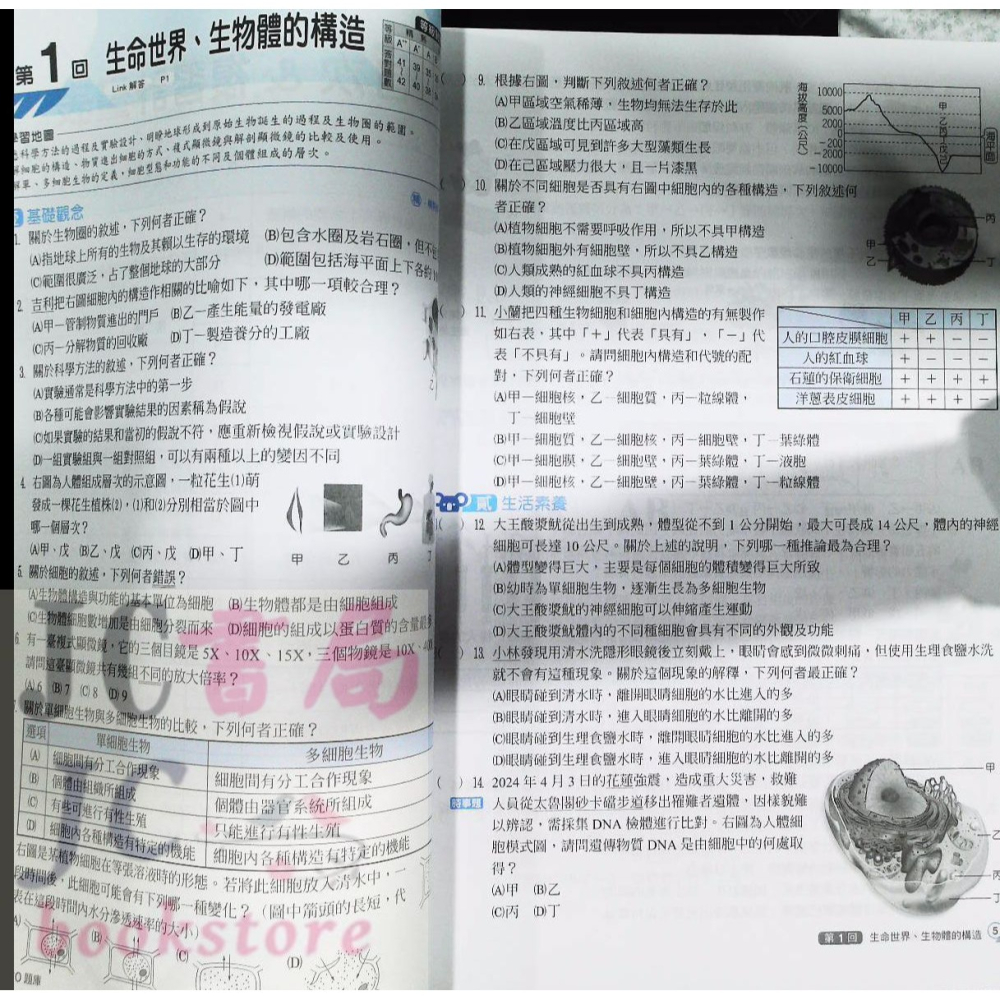 第1回 生命世界、生物體的構造
Link 解答 P1
等級
A++ A+ A
答對題數
41 39
42 40
學習地圖
科學方法的過程及實驗設計、明瞭地球形成到原始生物誕生的過程及生物圈的範圍。
解細胞的構造、物質進出細胞的方式、複式顯微鏡與解剖顯微鏡的比較及使用。
解單、多細胞生物的定義、細胞型態和功能的不同及個體組成的層次。
基礎觀念
1. 關於生物圈的敘述，下列何者正確？
(A)指地球上所有的生物及其賴以生存的環境 (B)包含水圈及岩石圈，但不
(C)範圍很廣泛，占了整個地球的大部分 (D)範圍包括海平面上下各約
2. 吉利把右圖細胞內的構造作相關的比喻如下，其中哪一項較合理？
(A)甲－管制物質進出的門戶 (B)乙－產生能量的發電廠
(C)丙－分解物質的回收廠 (D)丁－製造養分的工廠
3. 關於科學方法的敘述，下列何者正確？
(A)實驗通常是科學方法中的第一步
(B)各種可能會影響實驗結果的因素稱為假說
(C)如果實驗的結果和當初的假說不符，應重新檢視假說或實驗設計
(D)一組實驗組與一組對照組，可以有兩種以上的變因不同
4. 右圖為人體組成層次的示意圖，一粒花生(1)萌
發成一棵花生植株(2)，(1)和(2)分別相當於圖中
哪一個層次？
(A)甲、戊 (B)乙、戊 (C)丙、戊 (D)甲、丁
甲 乙 丙 丁
5. 關於細胞的敘述，下列何者錯誤？
(A)生物體構造與功能的基本單位為細胞 (B)生物體都是由細胞組成
(C)生物體細胞數增加是由細胞分裂而來 (D)細胞的組成以蛋白質的含量最
6. 有一臺複式顯微鏡，它的三個目鏡是 5X、10X、15X，三個物鏡是 10X、40X
請問這臺顯微鏡共有幾組不同的放大倍率？
(A) 6 (B) 7 (C) 8 (D) 9
7. 關於單細胞生物與多細胞生物的比較，下列何者正確？
選項 單細胞生物 多細胞生物
(A) 細胞間有分工合作現象 細胞間有分工合作現象
(B) 個體由組織所組成 個體由器官系統所組成
(C) 有些可進行有性生殖 只能進行有性生殖
(D) 細胞內各種構造有特定的機能 細胞內各種構造有特定的機能
右圖是某植物細胞在等張溶液時的形態。若將此細胞放入清水中，一
段時間後，此細胞可能會有下列哪一種變化？（圖中箭頭的長短，代
表在這段時間內水分滲透速率的大小）
(A) (B) (C) (D)
題庫
JC書局
bookstore
( ) 9. 根據右圖，判斷下列敘述何者正確？
(A)甲區域空氣稀薄，生物均無法生存於此
(B)乙區域溫度比丙區域高
(C)在戊區域可見到許多大型藻類生長
(D)在己區域壓力很大，且一片漆黑
海拔高度(公尺)
10000
5000
2000
0
-200
-2000
-10000
甲
海平面
( ) 10. 關於不同細胞是否具有右圖中細胞內的各種構造，下列敘述何
者正確？
(A)植物細胞不需要呼吸作用，所以不具甲構造
(B)植物細胞外有細胞壁，所以不具乙構造
(C)人類成熟的紅血球不具丙構造
(D)人類的神經細胞不具丁構造
丙
甲
乙
丁
( ) 11. 小蘭把四種生物細胞和細胞內構造的有無製作
如右表，其中「＋」代表「具有」，「－」代
表「不具有」。請問細胞內構造和代號的配
對，下列何者正確？
(A)甲－細胞核，乙－細胞質，丙－粒線體，
丁－細胞壁
(B)甲－細胞質，乙－細胞核，丙－細胞壁，丁－葉綠體
(C)甲－細胞膜，乙－細胞壁，丙－葉綠體，丁－液胞
(D)甲－細胞核，乙－細胞壁，丙－葉綠體，丁－粒線體
甲 乙 丙 丁
人的口腔皮膜細胞 ＋ ＋ － －
人的紅血球 ＋ － － －
石蓮的保衛細胞 ＋ ＋ ＋ ＋
洋蔥表皮細胞 ＋ ＋ ＋ －
貳 生活素養
( ) 12. 大王酸漿魷從出生到成熟，體型從不到 1 公分開始，最大可長成 14 公尺，體內的神經
細胞可長達 10 公尺。關於上述的說明，下列哪一種推論最為合理？
(A)體型變得巨大，主要是每個細胞的體積變得巨大所致
(B)幼時為單細胞生物，逐漸生長為多細胞生物
(C)大王酸漿魷的神經細胞可以伸縮產生運動
(D)大王酸漿魷體內的不同種細胞會具有不同的外觀及功能
( ) 13. 小林發現用清水洗隱形眼鏡後立刻戴上，眼睛會感到微微刺痛，但使用生理食鹽水洗
就不會有這種現象。關於這個現象的解釋，下列何者最正確？
(A)眼睛碰到清水時，離開眼睛細胞的水比進入的多
(B)眼睛碰到清水時，進入眼睛細胞的水比離開的多
(C)眼睛碰到生理食鹽水時，離開眼睛細胞的水比進入的多
(D)眼睛碰到生理食鹽水時，進入眼睛細胞的水比離開的多
( ) 14. 2024 年 4 月 3 日的花蓮強震，造成重大災害，救難
時事題 人員從太魯閣砂卡礑步道移出罹難者遺體，因樣貌難
以辨認，需採集 DNA 檢體進行比對。右圖為人體細
胞模式圖，請問遺傳物質 DNA 是由細胞中的何處取
得？
(A)甲 (B)乙
(C)丙 (D)丁
甲
乙
丙
丁
第 1 回 生命世界、生物體的構造 5